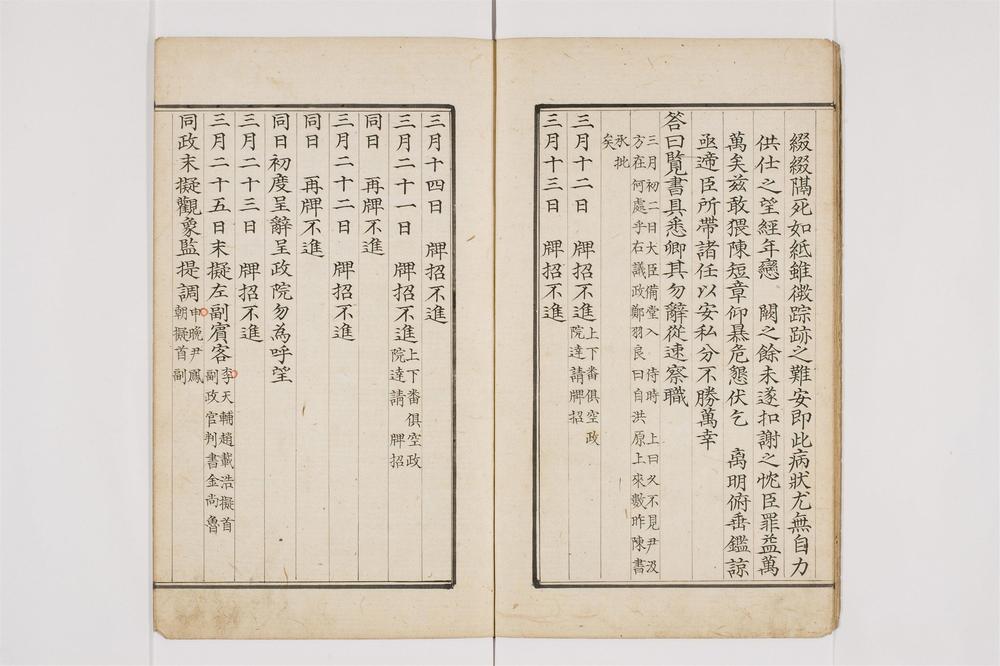 綴綴隔死如紙雖微踪跡之難安即此病狀尤無自力
供仕之望經年戀 闕之餘未遂扣謝之忱臣罪益萬
萬矣玆敢猥陳短章仰暴危懇伏乞 离明俯垂鑑諒
亟遞臣所帶諸任以安私分不勝萬幸
答曰覽書具悉卿其勿辭從速察職
三月初二日大臣備堂入 侍時 上曰久不見尹汲
方在何處乎右議政鄭羽良曰自洪原上來數昨陳書
承批
矣
三月十二日 牌招不進
上下番俱空政
院達請牌招
三月十三日 牌招不進
三月十四日 牌招不進
三月二十一日 牌招不進
上下番俱空政
院達請 牌招
同日 再牌不進
三月二十二日 牌招不進
同日 再牌不進
同日初度呈辭呈政院勿為呼望
三月二十三日 牌招不進
三月二十五日末擬左副賓客
李天輔趙載浩擬首
副政官判書金尚魯
同政末擬觀象監提調
申晚尹鳳
朝擬首副